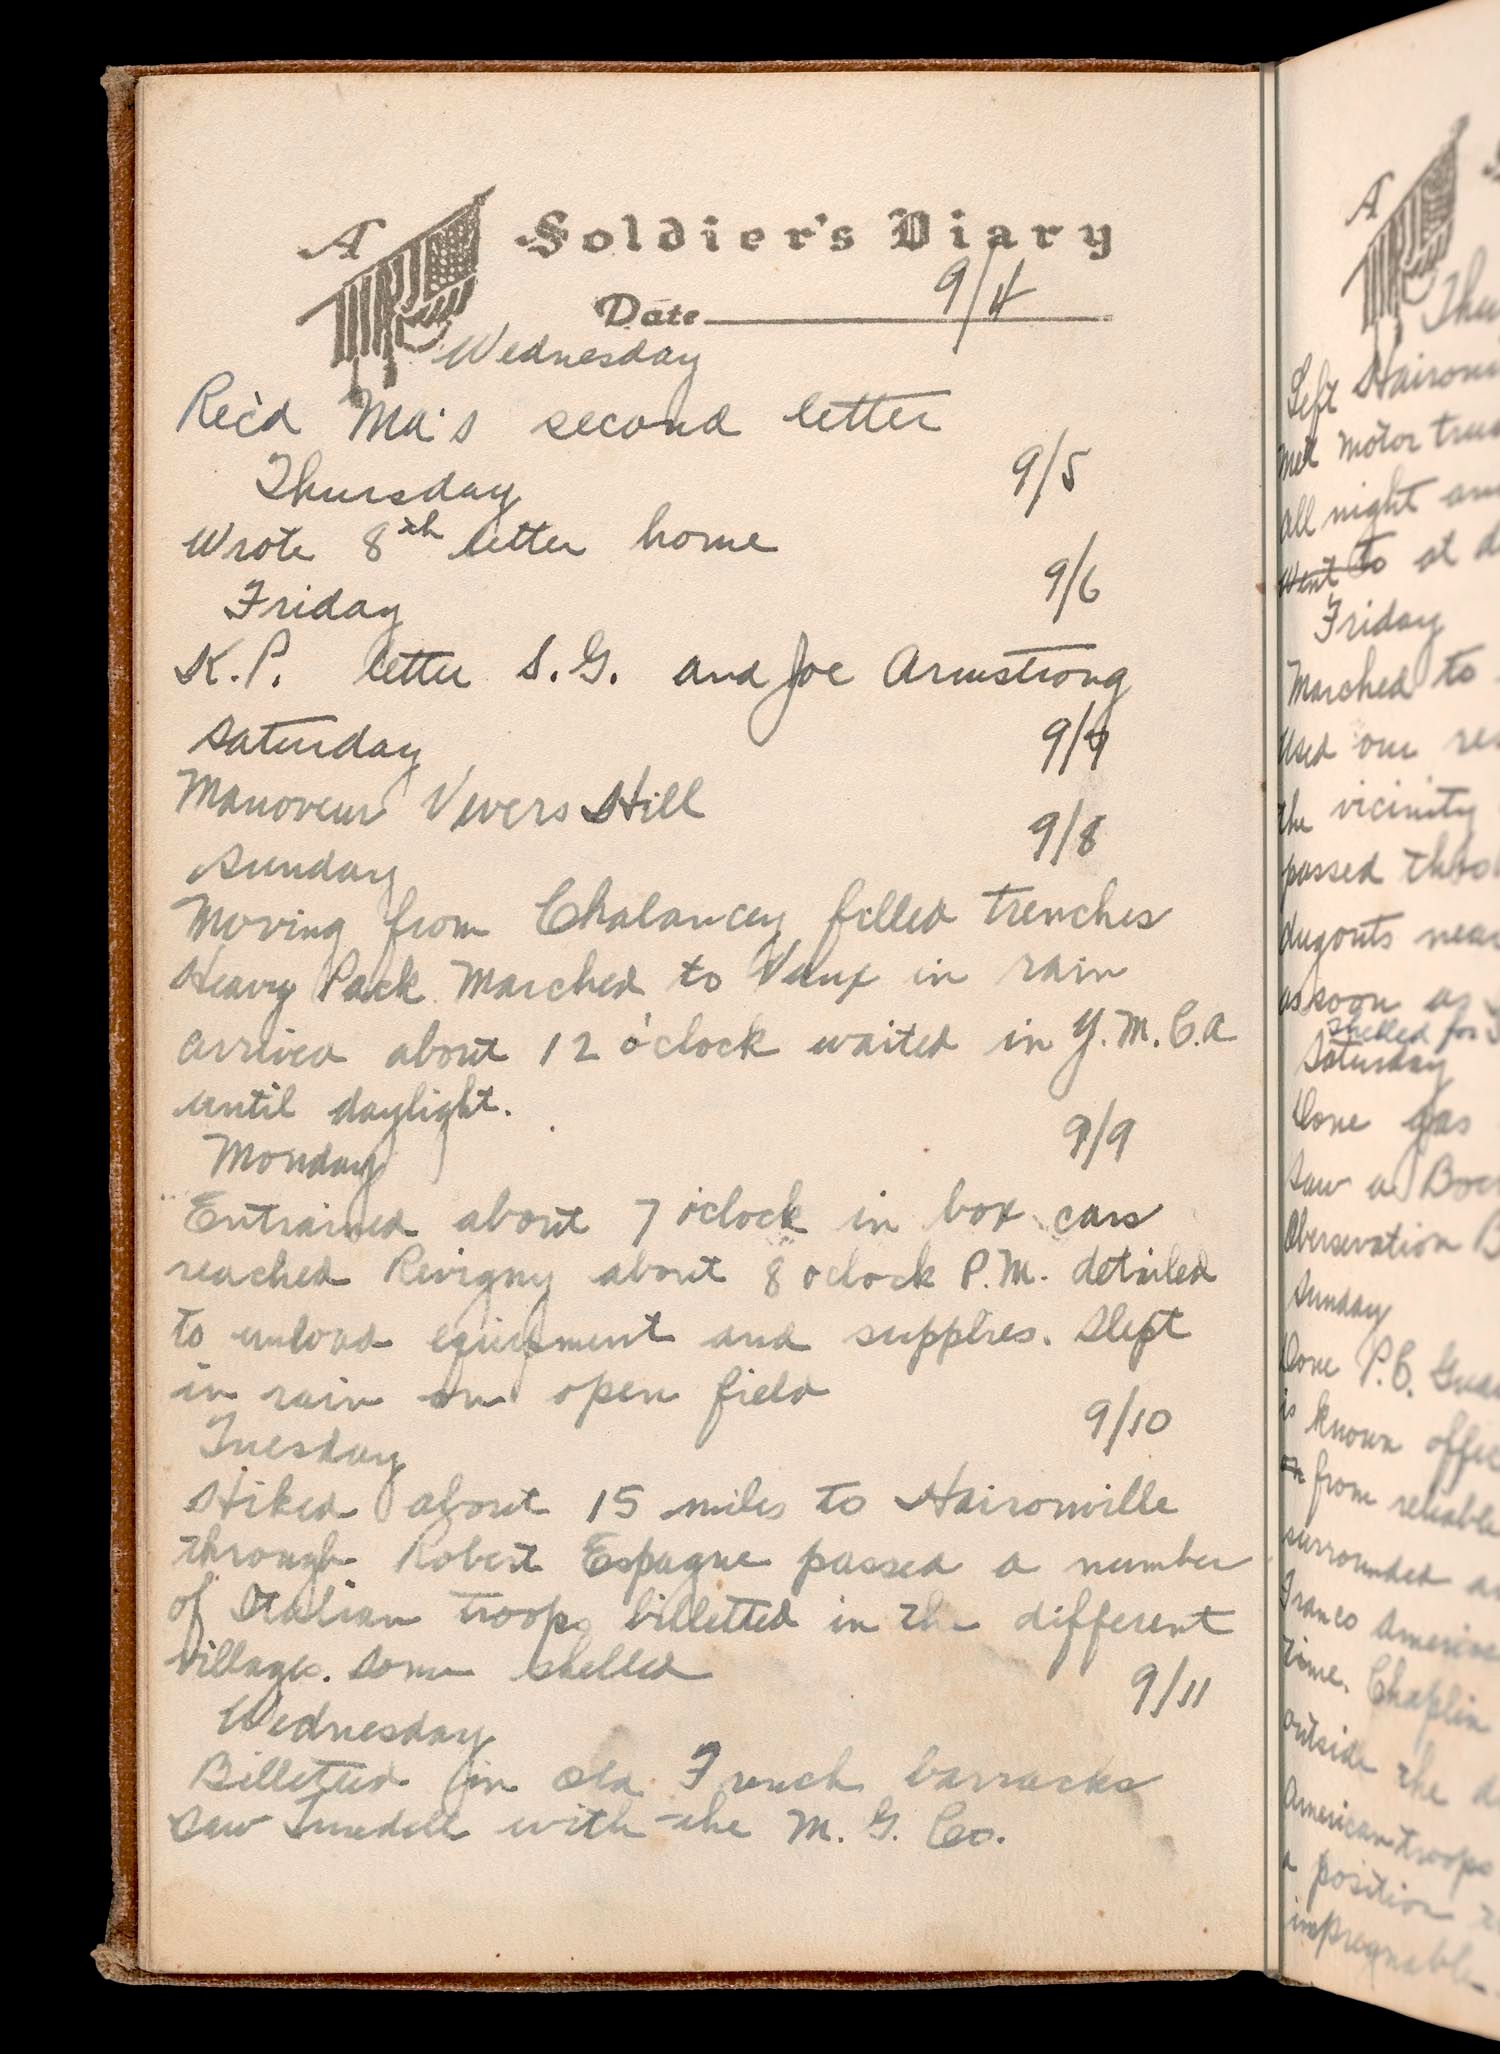 A Soldier's Diary
Date 9/4
Wednesday
Rec'd Ma's second letter
Thursday 9/5
Wrote 8th letter home
Friday 9/6
K.P. letter S.G. and Joe Armstrong
Saturday 9/7
Manoveur Vivers Hill
Sunday 9/8
Moving from Chalancey filled trenches
Heavy Pack Marched to Vaux in rain
arrived about 12 o'clock waited in Y.M.C.A
until daylight.
Monday 9/9
Entrained about 7 o'clock in box cars
reached Revigny about 8 oclock P.M. detailed
to unload equipment and supplies. Slept
in rain on open field
Tuesday 9/10
Hiked about 15 miles to Haironville
through Robert Espagne passed a number
of Italian troops billetted in the different
villages. some shelled
Wednesday 9/11
Billetted in old French barracks
saw with the M. G. Co.
A
Left
motor
all night
Went to at
Friday
Marched to
used our
the vicinity
passed
dugouts near
as soon as
shelled for
Saturday
gas
saw a
Obersevation
Sunday
P.C.
is known
on from reliable
surrounded
Franco
time. Chaplin
outside the
American troops
a position
impregnable